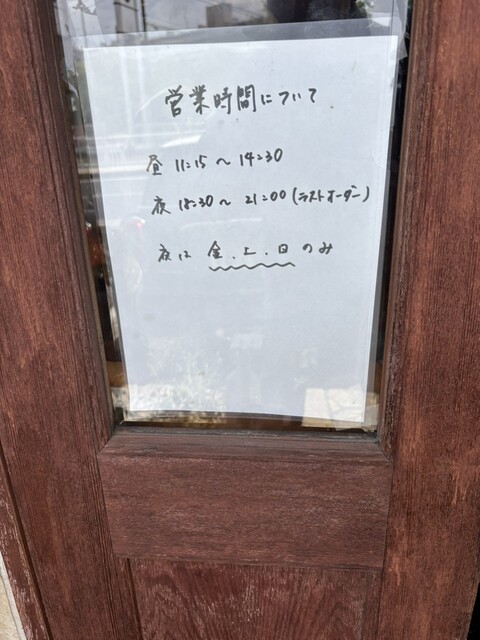 営業時間について
昼 11:15 〜 14:30
夜 18:30 〜 21:00 (ラストオーダー)
夜は 金.土.日 のみ